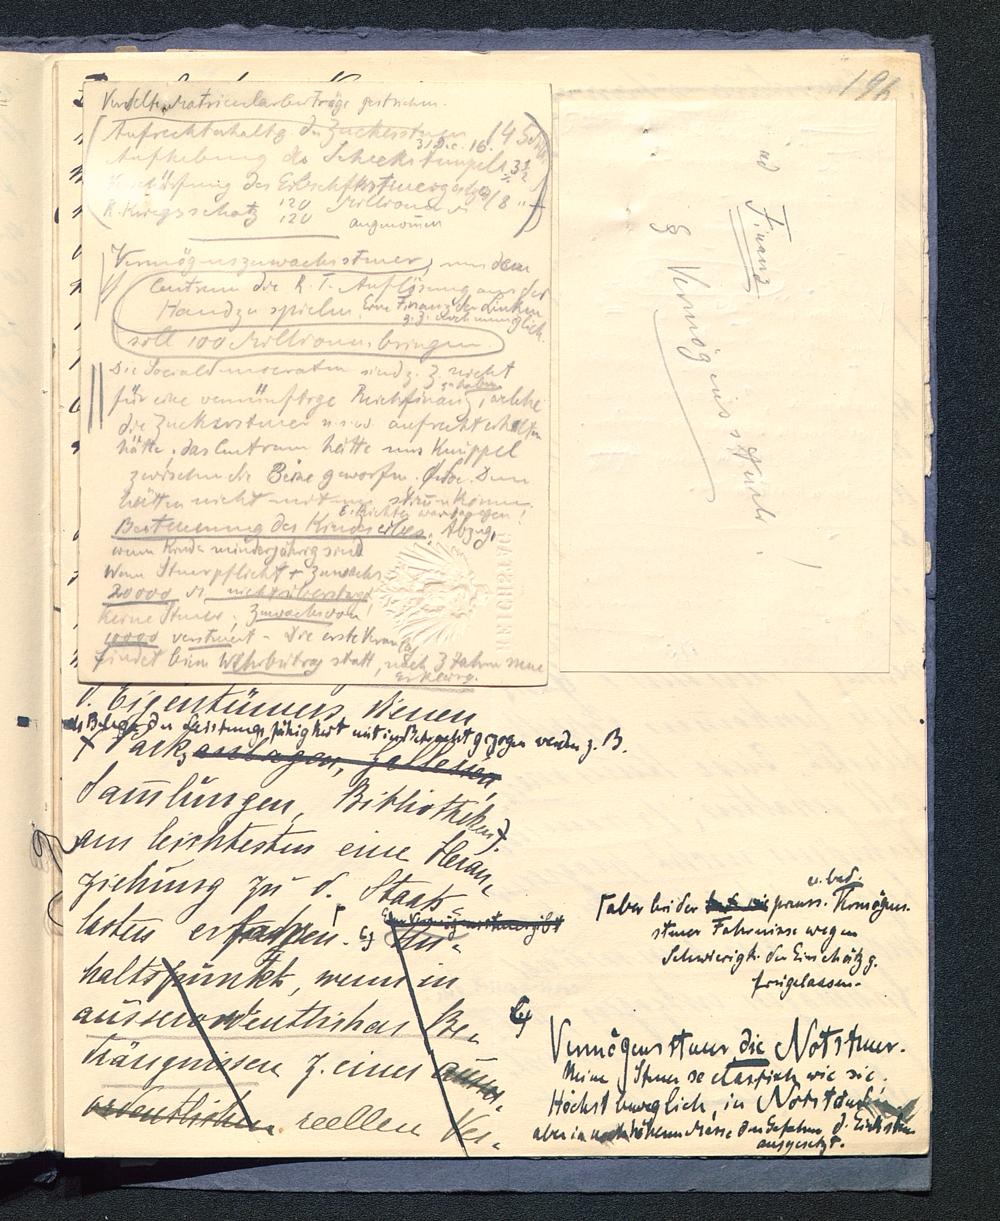 196
Veredelte Matricularbeiträge gestrichen.
Aufrechterhaltg der Zuckersteuer
31 Dec. 16.
Aufhebung des Scheckstempels
des Erbschftssteuergesetzes
R. Kriegsschatz 120 Millionen
120 angenommen
Vermögenszuwachssteuer, um dem
Centrum die R. T. Auflösung aus der
Hand zu spielen. Eine Finanz der Linken
z. Z. noch unmöglich.
soll 100 Millionen bringen
Die Socialdemocraten sind z. Z. nicht
zu haben
für eine vernünftige Reichsfinanz, welche
die Zuckersteuer u.s.w. aufrechterhalten
hätte, das Centrum hätte uns Knüppel
zwischen die Beine geworfen.
hätten nicht mit uns stimmen können
E. Richter war dagegen!
Besteuerung des Kindeserbes. Abzug,
wenn Kinder minderjährig sind
Wenn Steuerpflicht + Zuwachs
20000 M. nicht übersteigt
keine Steuer. Zuwachs von
10000 versteuert - Die erste
findet beim Wehrbeitrag statt, nach 3 Jahren neue
Erklärg.
REICHSTAG
ad Finanz
§ Vermögenssteuer
d. Eigentümers dienen
als Belege der Leistungsfähigkeit mit in Betracht gezogen werden z. B.
Parkanlagen, Gallerien
Samlungen, Bibliotheken
am leichtesten eine Heran-
ziehung zu d. Staats-
lasten erfahren.
haltspunkt, wenn in
ausserordentlichen Be-
drängnissen z. einer ausser-
ordentlichen reellen Ver-
u. bad.
aber bei der preuss. Vermögens-
steuer Fahrnisse wegen
Schwierigk. der Einschätzg.
freigelassen.
Vermögenssteuer die Notsteuer.
Keine Steuer so elastisch wie sie.
Höchst beweglich, in Notständen
aber in höherem Masse den Gefahren d.
ausgesetzt.